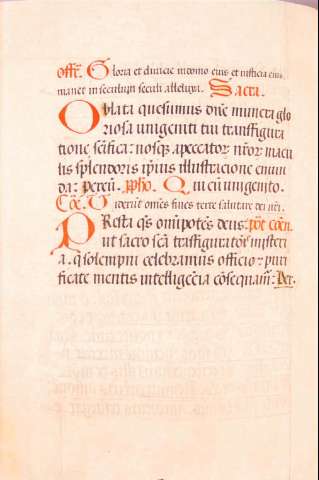 Offr̄. Gloria et diuicie in domo eius et iusticia eius
manet in seculum seculi alleluya. Sacra.
Oblata quesumus dn̄e munera glo
riosa unigeniti tui transfigura
tione sc̄ifica: nosq; a peccatorū nr̄or macu
lis splendoris ip̄ius illustracione emun
da: Per eūdē. p̄pho. Quicū unigenito.
Cōē. Viderūt om̄es fines terre salutare dei nr̄i.
Presta q̄s om̄ipotēs deus: pōt cōēm
ut sacro sc̄ā transfiguratōīs misteri
a. q̄ solempni celebramus officio: puri
ficate mentis intelligēcia cōsequam̄: Per.